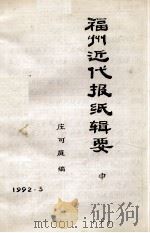 福州近代报纸辑要
中
庄可庭 编
1992·5